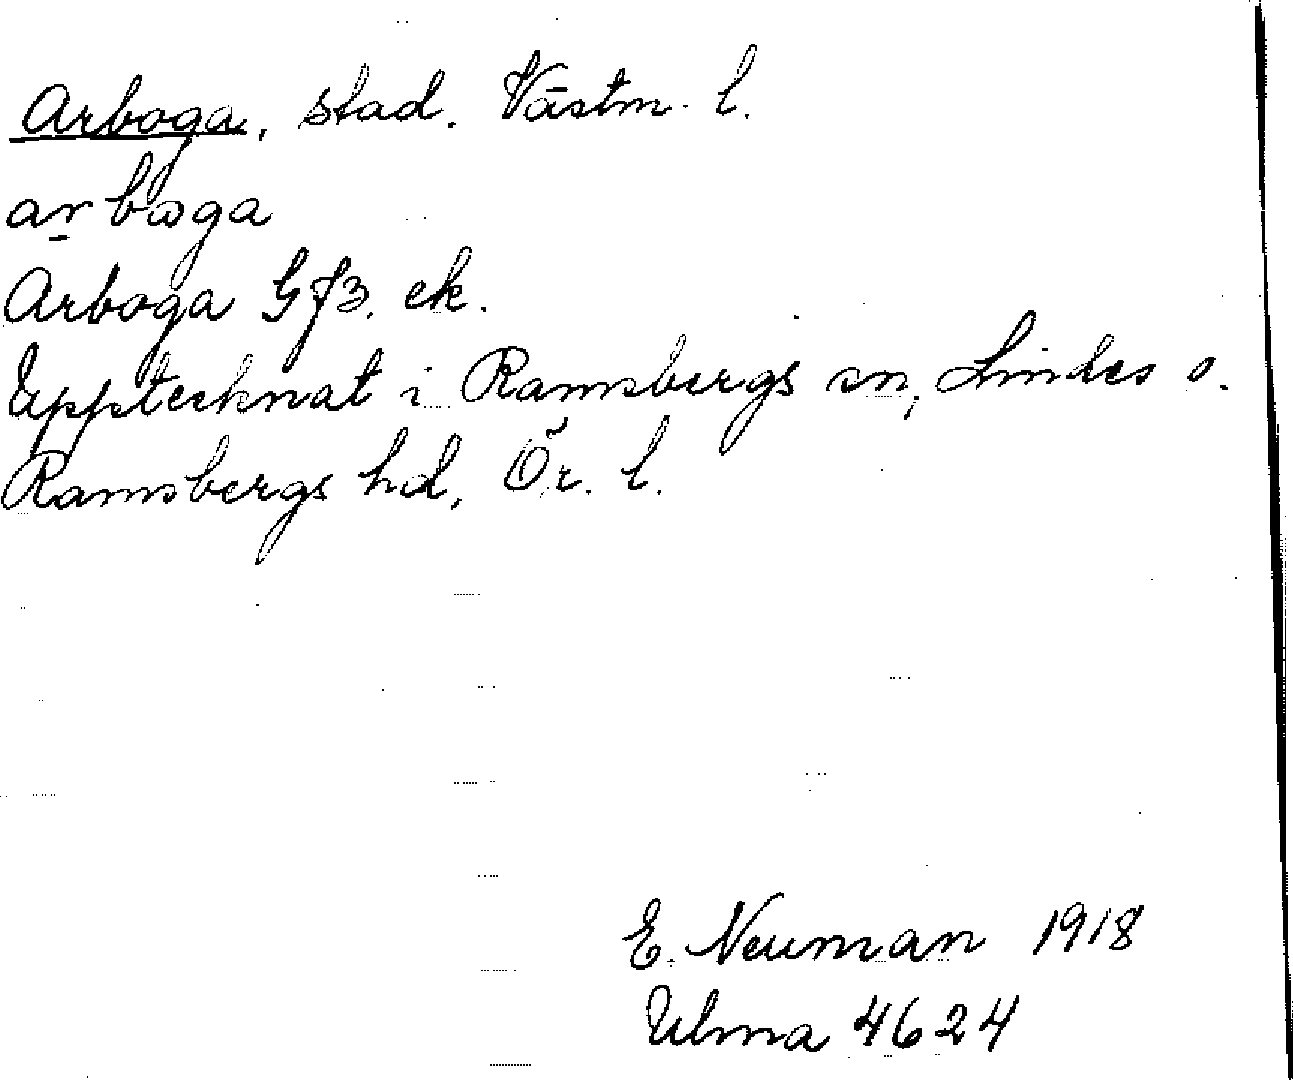 Arboga, stad. Västm. l.
arboga
Arboga Gf3. ek.
Upptecknat i Ramsbergs sn, Lindes o.
Ramsbergs hd, Ör. l.
E. Neuman 1918
Ulma 4624